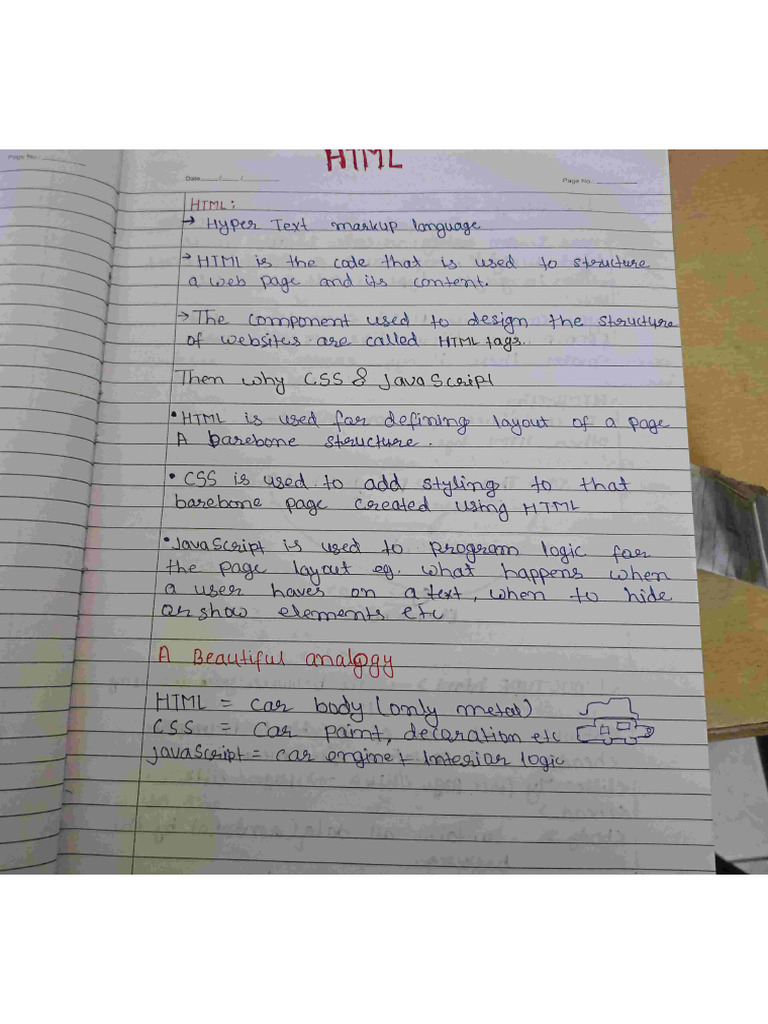 HTML
Page No.
Date
Page No.
HTML:
→ Hyper Text markup language
→ HTML is the code that is used to structure
a web page and its content.
→ The component used to design the structure
of websites are called HTML tags.
Then why CSS & JavaScript
• HTML is used for defining layout of a page
A barebone structure.
• CSS is used to add styling to that
barebone page created using HTML
• JavaScript is used to program logic for
the page layout eg. what happens when
a user hovers on a text, when to hide
or show elements etc
A Beautiful analogy
HTML = car body (only metal)
CSS = Car paint, decoration etc
JavaScript = car engine + Interior logic